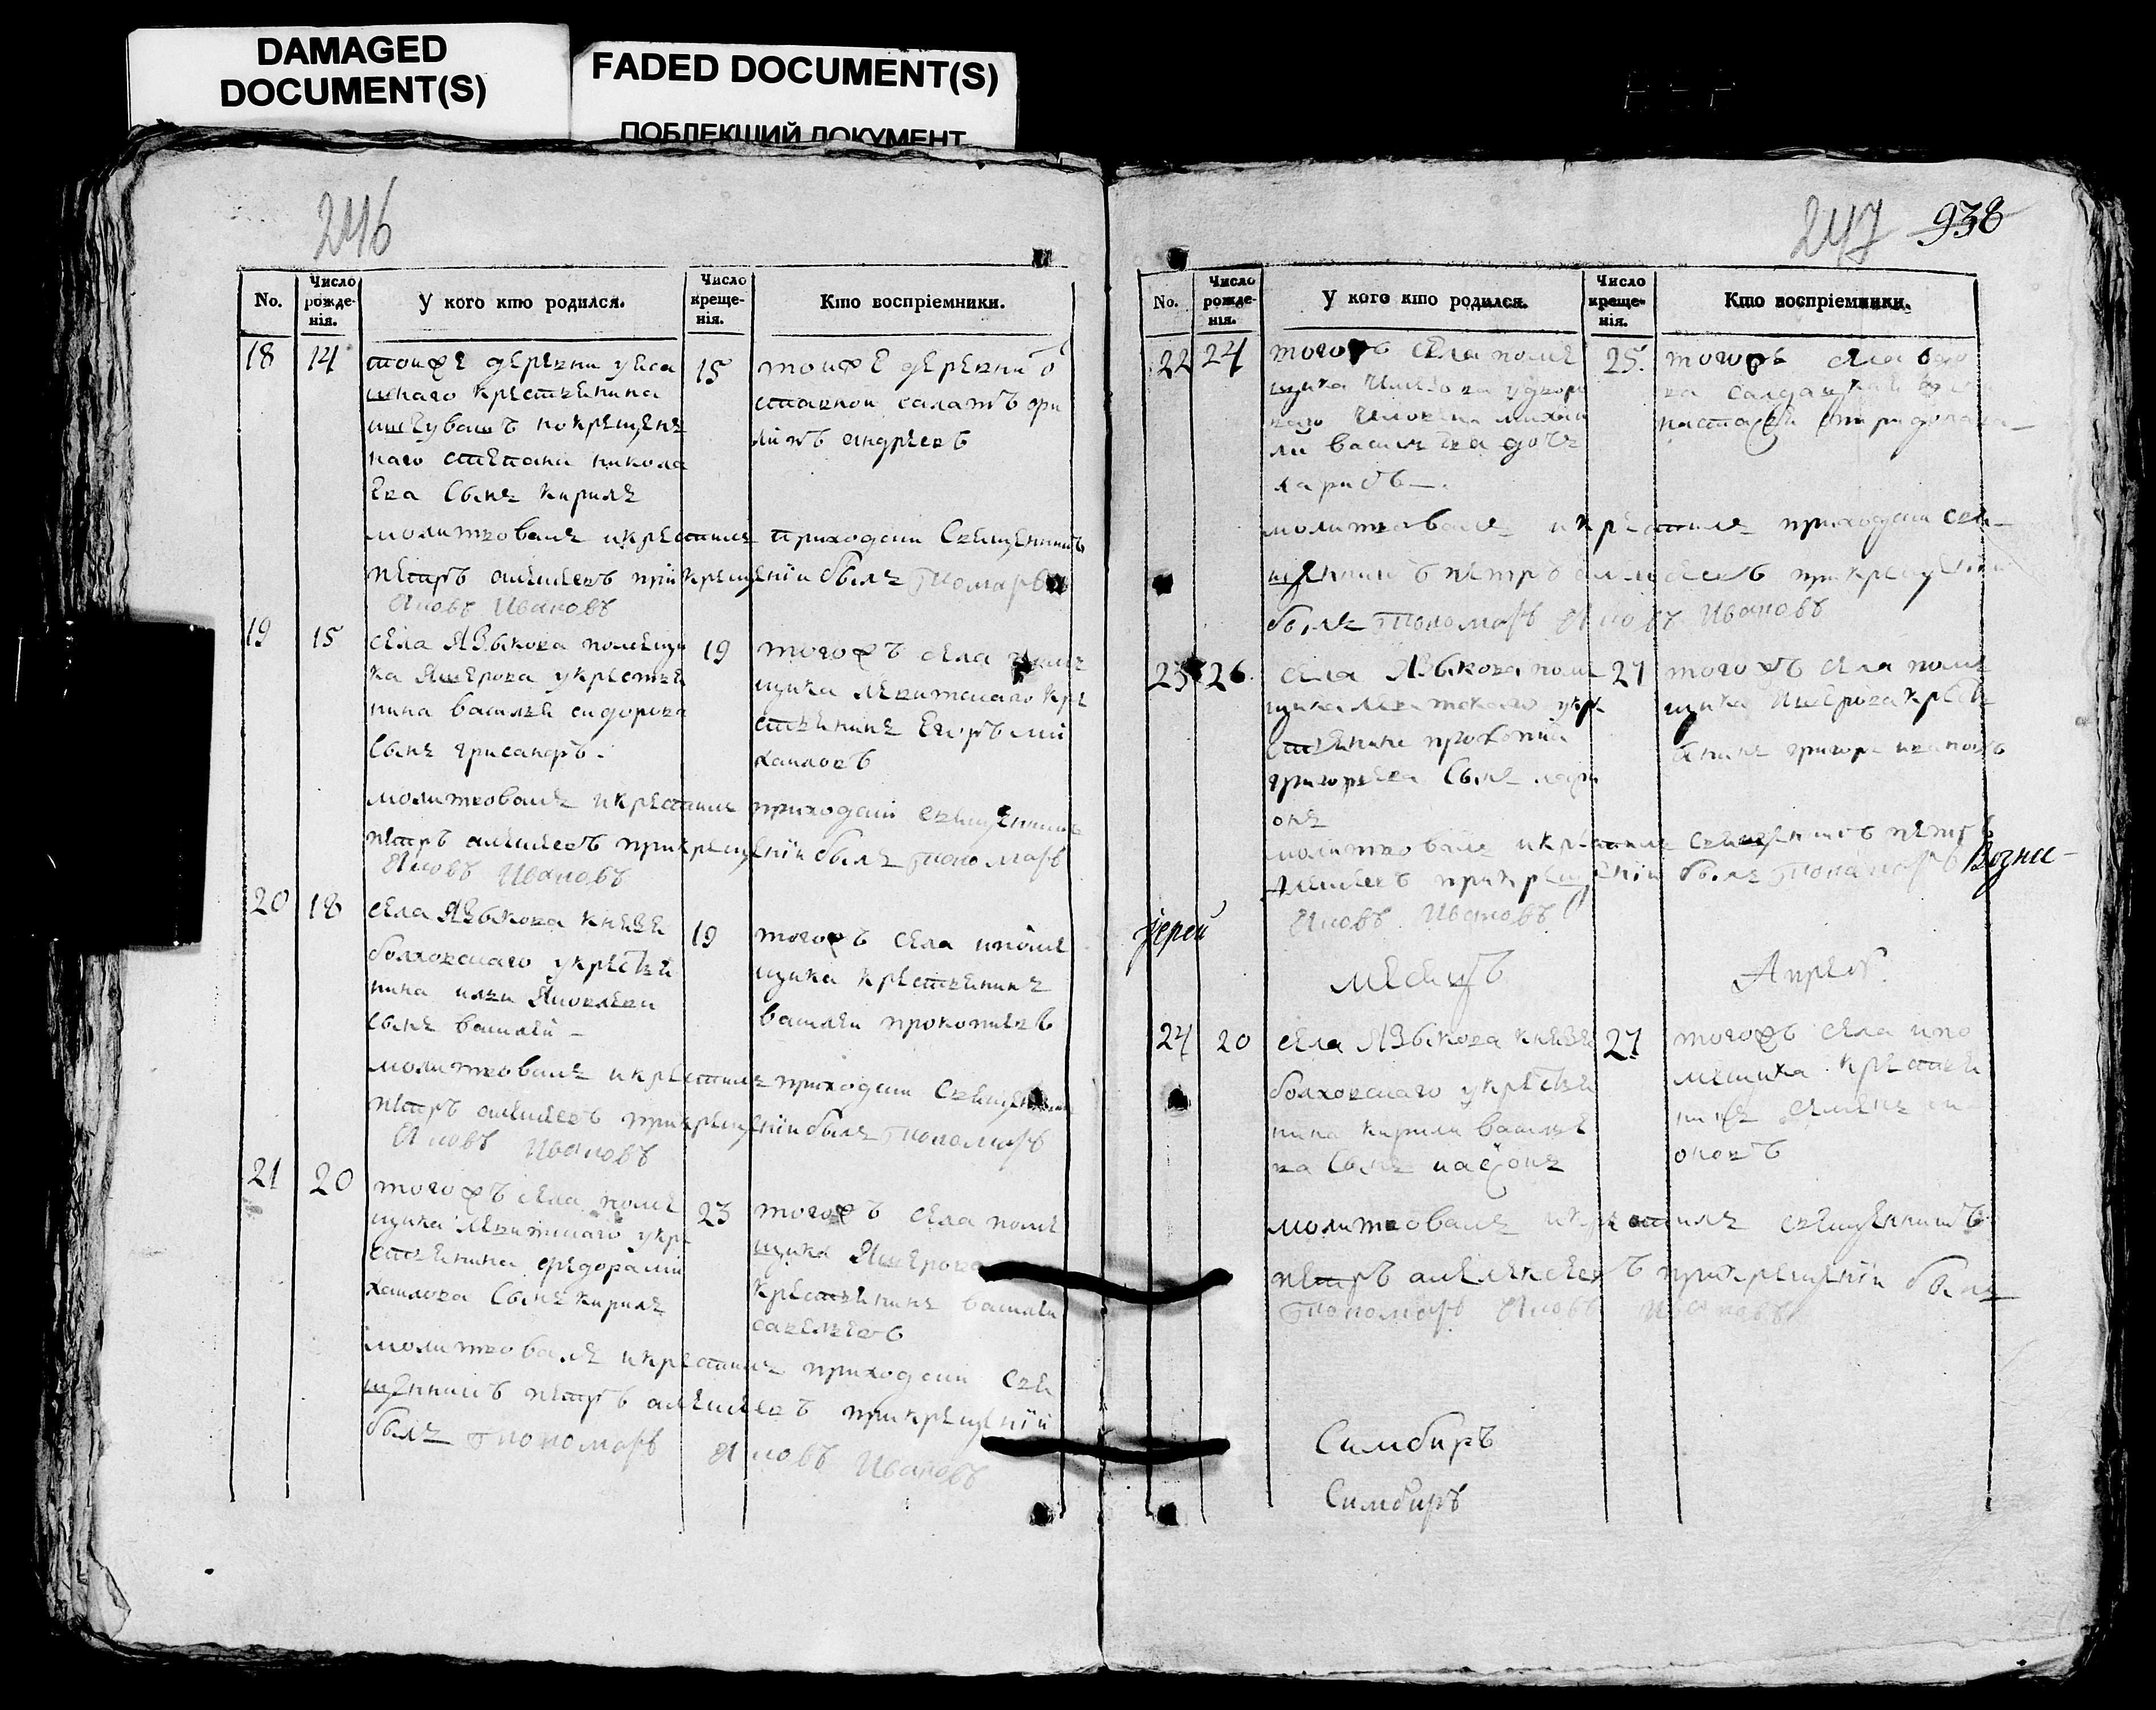 DAMAGED
DOCUMENT(S)
FADED DOCUMENT(S)
ПОБЛЕКШИЙ ДОКУМЕНТ
246
No.
Число рожде-нія.
У кого кто родился.
Число креще-нія.
Кто воспріемники.
18 14
тоиже деревни уяса
шнаго крестьянина
изчувашъ новокрещене
наго степана никола
ева сынъ кирилъ
15
тоиже деревни о
ставной салатъ
андреевъ
молитвовалъ икрестилъ приходский священникъ
петръ алексеевъ при крещении былъ пономарь
Яковъ Ивановъ
19 15
села Языкова помещи
ка Яшерова укрестья
нина василья сидорова
сынъ
19
тогожъ села поме
щика левитскаго кре
стьянинъ Егоръ ми
хаиловъ
молитвовалъ икрестилъ приходский священникъ
петръ алексеевъ прикрещении былъ пономарь
Яковъ Ивановъ
20 18
села Языкова князя
болховскаго укрестья
нина ильи Яковлева
сынъ василей
19
тогожъ села ипоме
щика крестьянинъ
василей прокопьевъ
молитвовалъ икрестилъ приходский священникъ
петръ алексеевъ прикрещении былъ пономарь
Яковъ Ивановъ
21 20
тогожъ села поме
щика левитскаго укре
стьянина федора ми
хаилова сынъ кирилъ
23
тогожъ села поме
щика Яшерова
крестьянинъ василей
савельевъ
молитвовалъ икрестилъ приходский свя
щенникъ петръ алексеевъ прикрещении
былъ пономарь Яковъ Ивановъ
247 938
No.
Число рожде-нія.
У кого кто родился.
Число креще-нія.
Кто воспріемники.
22 24
тогожъ села поме
щика удворо
ваго человека михаи
ла васильева дочь
25.
тогожъ села
настасья
молитвовалъ икрестилъ приходский свя
щенникъ петръ алексеевъ прикрещении
былъ пономарь Яковъ Ивановъ
23 26
села Языкова поме
щика левитскаго укре
стьянина прокопия
григорьева сынъ лари
онъ
27
тогожъ села поме
щика Яшерова кресть
янинъ григорей ивановъ
молитвовалъ икрестилъ священникъ петръ
алексеевъ прикрещении былъ пономарь
Возне-
Яковъ Ивановъ
Іерей
месяцъ Апрель
24 20
села Языкова князя
болховскаго укрестья
нина кирилы василье
ва сынъ
27
тогожъ села ипо
мещика крестья
нинъ семенъ
оновъ
молитвовалъ икрестилъ священникъ
петръ алексеевъ прикрещении былъ
пономарь Яковъ Ивановъ
Симбиръ
Симбиръ